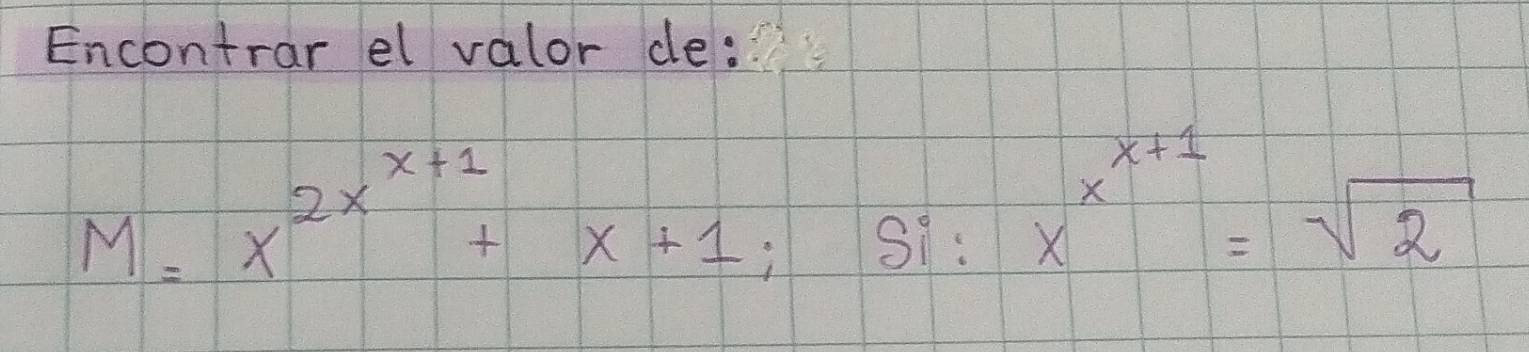 Encontrar el valor de:
M = x^{2x^{x+1}} + x + 1; Si: x^{x^{x+1}} = √2